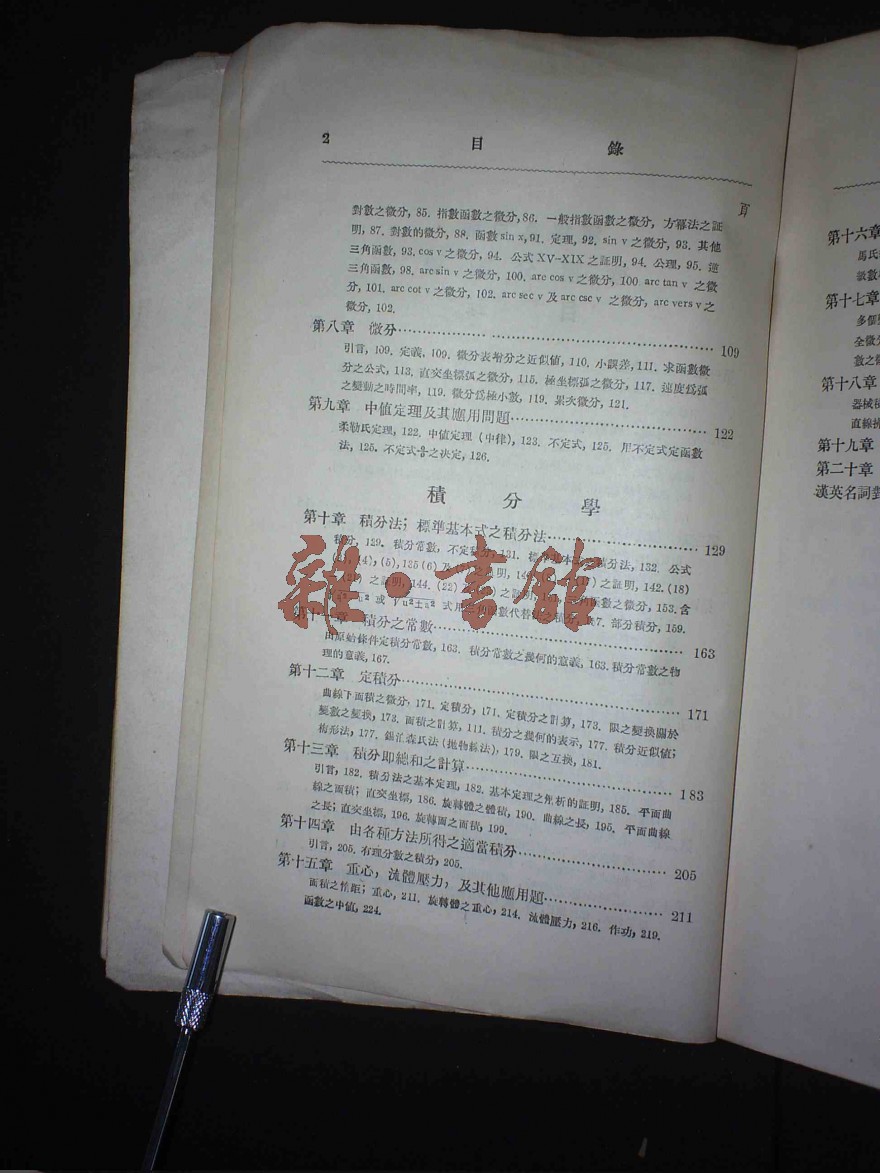 2 目 錄
頁
對數之微分, 85. 指數函數之微分, 86. 一般指數函數之微分, 方冪法之証
明, 87. 對數的微分, 88. 函數 sin x, 91. 定理, 92. sin v 之微分, 93. 其他
三角函數, 93. cos v 之微分, 94. 公式 XV-XIX 之証明, 94. 公理, 95. 逆
三角函數, 98. arc sin v 之微分, 100. arc cos v 之微分, 100 arc tan v 之微
分, 101. arc cot v 之微分, 102. arc sec v 及 arc csc v 之微分, arc vers v 之
微分, 102.
第八章 微分 109
引言, 109. 定義, 109. 微分表增分之近似值, 110. 小誤差, 111. 求函數微
分之公式, 113. 直交坐標弧之微分, 115. 極坐標弧之微分, 117. 速度爲弧
之變動之時間率, 119. 微分爲極小數, 119. 累次微分, 121.
第九章 中值定理及其應用問題 122
柔勒氏定理, 122. 中値定理 (中律), 123. 不定式, 125. 用不定式定函數
法, 125. 不定式 0/0 之決定, 126.
積 分 學
第十章 積分法; 標準基本式之積分法 129
積分, 129. 積分常數, 不定積分, 131. 積分法, 132. 公式
(4), (5), 135 (6) 之証明, 142. (18)
之証明, 144. (22) 之微分, 153. 含
或 √u²±a² 式用 函數代替 部分積分, 159.
第十一章 積分之常數 163
由原始條件定積分常數, 163. 積分常數之幾何的意義, 163. 積分常數之物
理的意義, 167.
第十二章 定積分 171
曲線下面積之微分, 171. 定積分, 171. 定積分之計算, 173. 限之變換關於
變數之變換, 173. 面積之計算, 111. 積分之幾何的表示, 177. 積分近似值;
梯形法, 177. 錫 森氏法 (拋物線法), 179. 限之互換, 181.
第十三章 積分卽總和之計算 183
引言, 182. 積分法之基本定理, 182. 基本定理之解析的証明, 185. 平面曲
線之面積; 直交坐標, 186. 旋轉體之體積, 190. 曲線之長, 195. 平面曲線
之長; 直交坐標, 196. 旋轉面之面積, 199.
第十四章 由各種方法所得之適當積分 205
引言, 205. 有理分數之積分, 205.
第十五章 重心, 流體壓力, 及其他應用題 211
面積之 距; 重心, 211. 旋轉體之重心, 214. 流體壓力, 216. 作功, 219.
函數之中值, 224.
雜·書館
第十六章
馬氏
級數
第十七章
多個
全微
數之
第十八章
器械
直線
第十九章
第二十章
漢英名詞